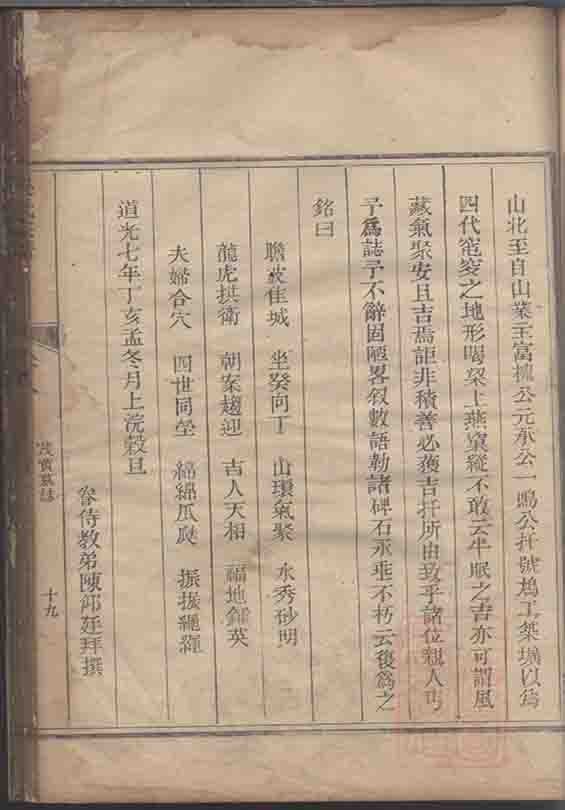 山北至自山業主富檍公元承公一鳴公扦號塢工築壙以爲
四代窀窆之地形喝梁上燕窠縱不敢云牛眠之吉亦可謂風
藏氣聚安且吉焉詎非積善必獲吉扦所由致乎諸位親人丐
予爲誌予不辭固陋畧叙數語勒諸碑石永垂不朽云後爲之
銘曰
瞻彼佳城 坐癸向丁 山環氣聚 水秀砂明
龍虎拱衛 朝案趨迎 吉人天相 福地鍾英
夫婦合穴 四世同塋 綿綿瓜瓞 振振繩繩
道光七年丁亥孟冬月上浣穀旦
眷侍教弟陳邦廷拜撰
茂賞墓誌
十九